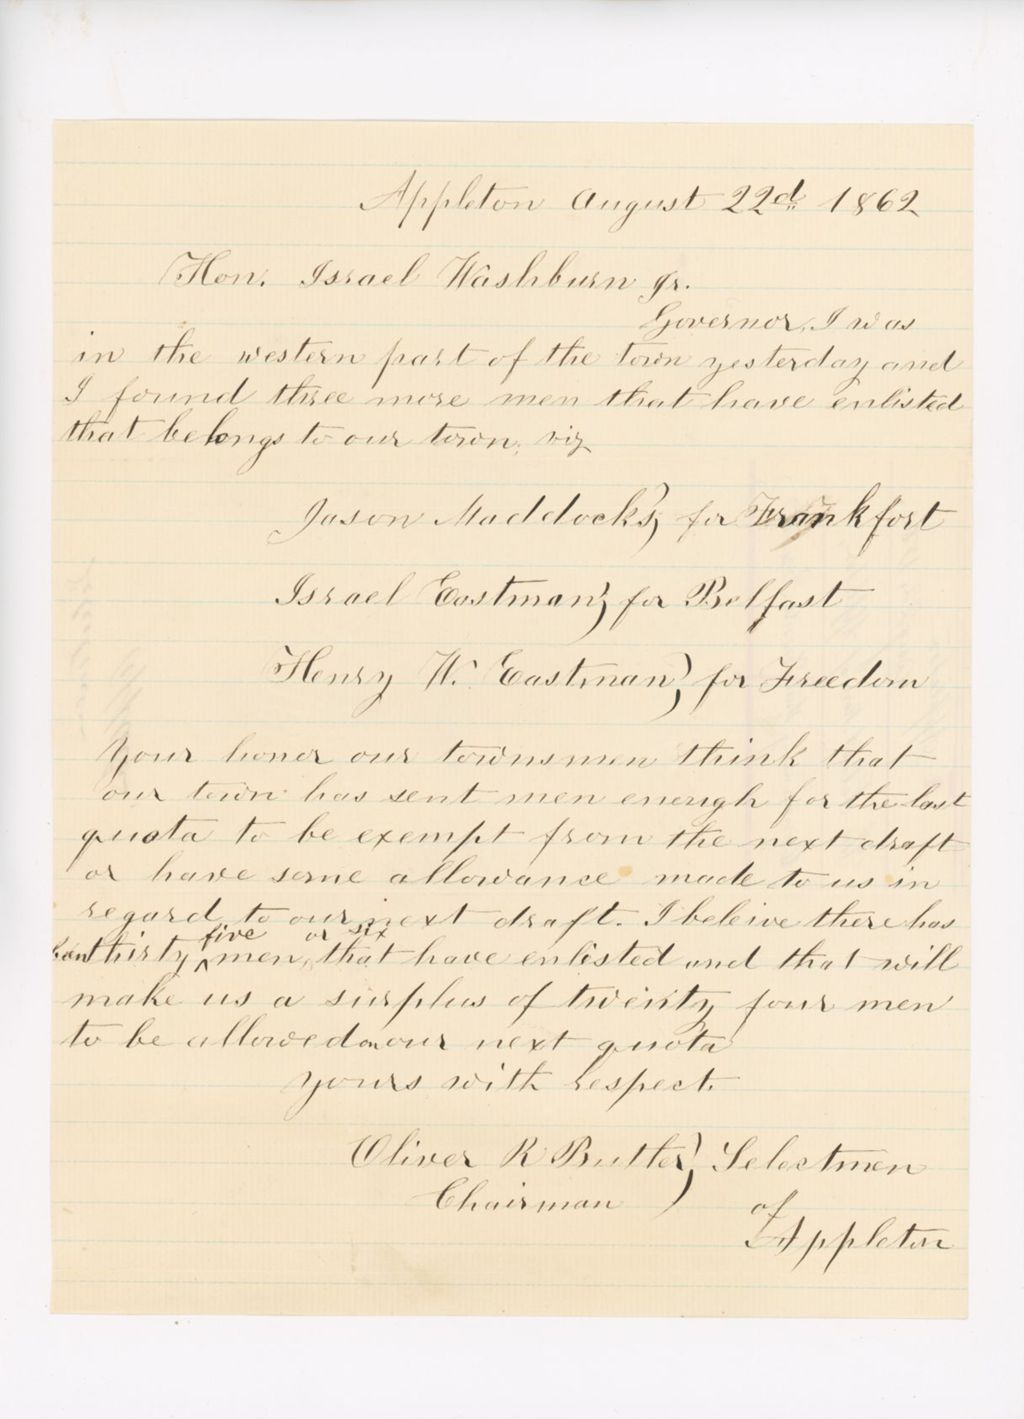 Appleton August 22d. 1862
Hon. Israel Washburn Jr.
Governor, I was
in the western part of the town yesterday and
I found three more men that have enlisted
that belongs to our town, viz
Jason Maddocks, for Frankfort
Israel Eastman, for Belfast
Henry W. Eastman, for Freedom
Your honor our townsmen think that
our town has sent men enough for the last
quota to be exempt from the next draft
or have some allowance made to us in
regard to our next draft. I beleive there has
five or six
been thirty ^ men, that have enlisted and that will
make us a surplus of twenty four men
to be allowed on our next quota
yours with respect.
Oliver R Butler } Selectmen
Chairman } of
Appleton